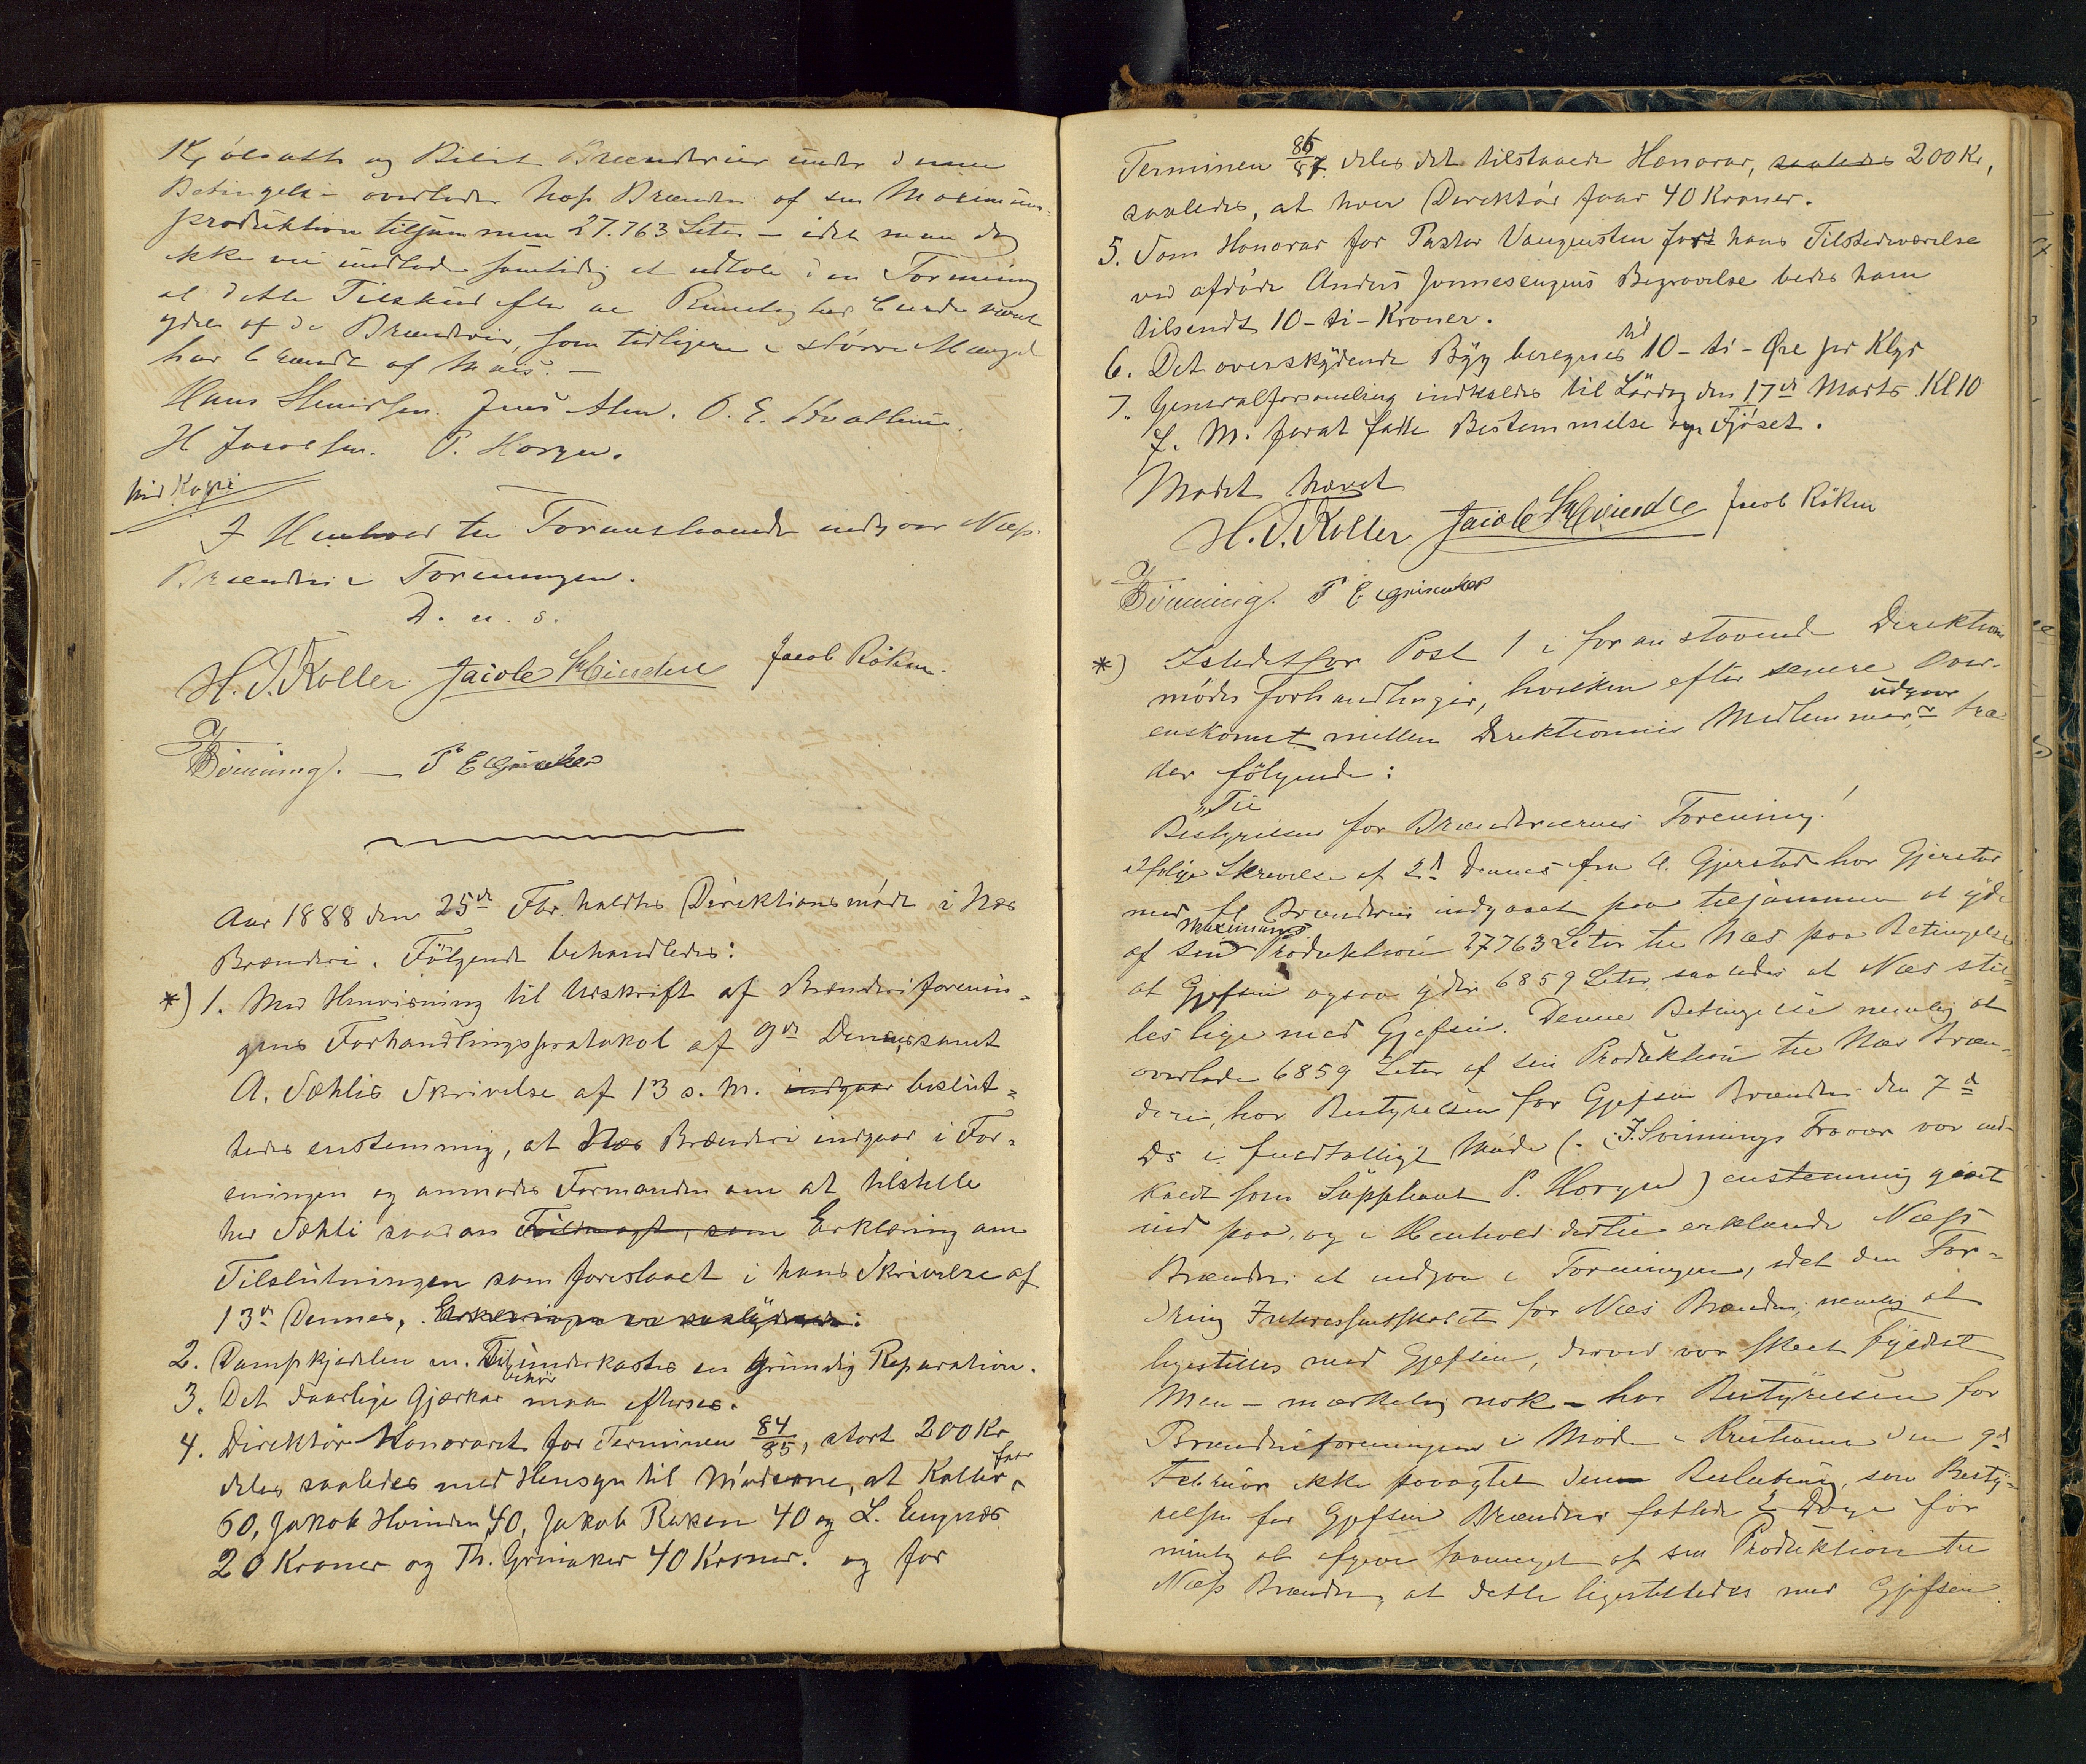 Kjölsath og Bilit Brænderier under denne
Betingelse overlader Næss Brænderi af sin Maximums-
produktion tilsammen 27.763 Liter – idet man dog
ikke vil undlade samtidig at udtale den Formening
at dette Tilskud efter al Rimelighed burde været
ydet af de Brænderier, som tidligere i större Mængde
har brændt af Mais. –
Hans Jens Alm. O. E.
H Jacobsen. P. Horgen.
Ret Kopi
I Henhold til Foranstaaende indgaar Næss
Brænderi i Foreningen.
D. u. s.
H. T. Koller Jacob Hvinden Jacob Röken.
Bönning. – T E Grinaker
Aar 1888 den 25de Febr. holdtes Direktionsmöde i Næs
Brænderi. Fölgende behandledes:
*) 1. Med Henvisning til Udskrift af Brænderiforenin-
gens Forhandlingsprotokol af 9de Dennes, samt
A. Sæhlis Skrivelse af 13 s. M. indgaar beslut-
tedes enstemmig, at Næs Brænderi indgaar i For-
eningen og anmodes Formanden om at tilstille
hr Sæhli saadan Fuldmagt, som Erklæring om
Tilslutningen som foreslaaet i hans Skrivelse af
13de Dennes,
2. Dampkjedelen m. Tilbehör underkastes en grundig Reparation.
3. Det daarlige Gjærkar maa efterses.
4. Direktör Honoraret for Terminen 84/85, stort 200 Kr
deles saaledes med Hensyn til Möderne, at Koller faar
60, Jakob Hvinden 40, Jakob Röken 40 og L. Engnæs
20 Kroner og Th. Grinaker 40 Kroner. og for
Terminen 86/87. deles det tilstaaede Honorar, saaledes 200 Kr,
saaledes, at hver Direktör faar 40 Kroner.
5. Som Honorar for Pastor Vangensten for hans Tilstedeværelse
ved afdöde Anders Begravelse bedes ham
tilsendt 10 - ti - Kroner.
6. Det overskydende Byg beregnes til 10 - ti - Øre pr Klgr
7. Generalforsamling indkaldes til Lördag den 17de Marts Kl 10
f. M. forat fatte Bestemmelse om Fjöset.
Mödet hævet
H. T. Koller Jacob Hvinden Jacob Röken
Bönning. T E Grinaker
*) Istedetfor Post 1 i foranstaaende Direktions
mödes Forhandlinger, hvilken efter senere Over-
enskomst mellem Direktionens Medlemmer udgaar, træ
der fölgende:
"Til
Bestyrelsen for Brænderiernes Forening!
Ifölge Skrivelse af 2d Dennes fra A. Gjerstad har Gjerstad
med fl Brænderier indgaaet paa tilsammen at yde
af sin Maximums Produktion 27763 Liter til Næs paa Betingelse
at Gjefsen ogsaa yder 6859 Liter saaledes at Næs stil-
les lige med Gjefsen. Denne Betingelse nemlig at
overlade 6859 Liter af sin Produktion til Næs Bræn-
deri, har Bestyrelsen for Gjefsen Brænderi den 7de
Ds i fuldtalligt Möde (i J. Svinnings Fravær var ind-
kaldt som Suppleant P. Horgen) enstemmig gaaet
ind paa, og i Henhold dertil erklærede Næss
Brænderi at indgaa i Foreningen, idet den For-
dring Interessentskabet for Næs Brænderi, nemlig at
ligestilles med Gjefsen, derved var skeet fyldest
Men – mærkelig nok – har Bestyrelsen for
Brænderiforeningen i Möde i Kristiania den 9de
Februar ikke paaagtet denne Beslutning, som Besty-
relsen for Gjefsen Brænderi fattede 2 Dage för
nemlig at afgive saameget af sin Produktion til
Næss Brænderi, at dette ligestilledes med Gjefsen